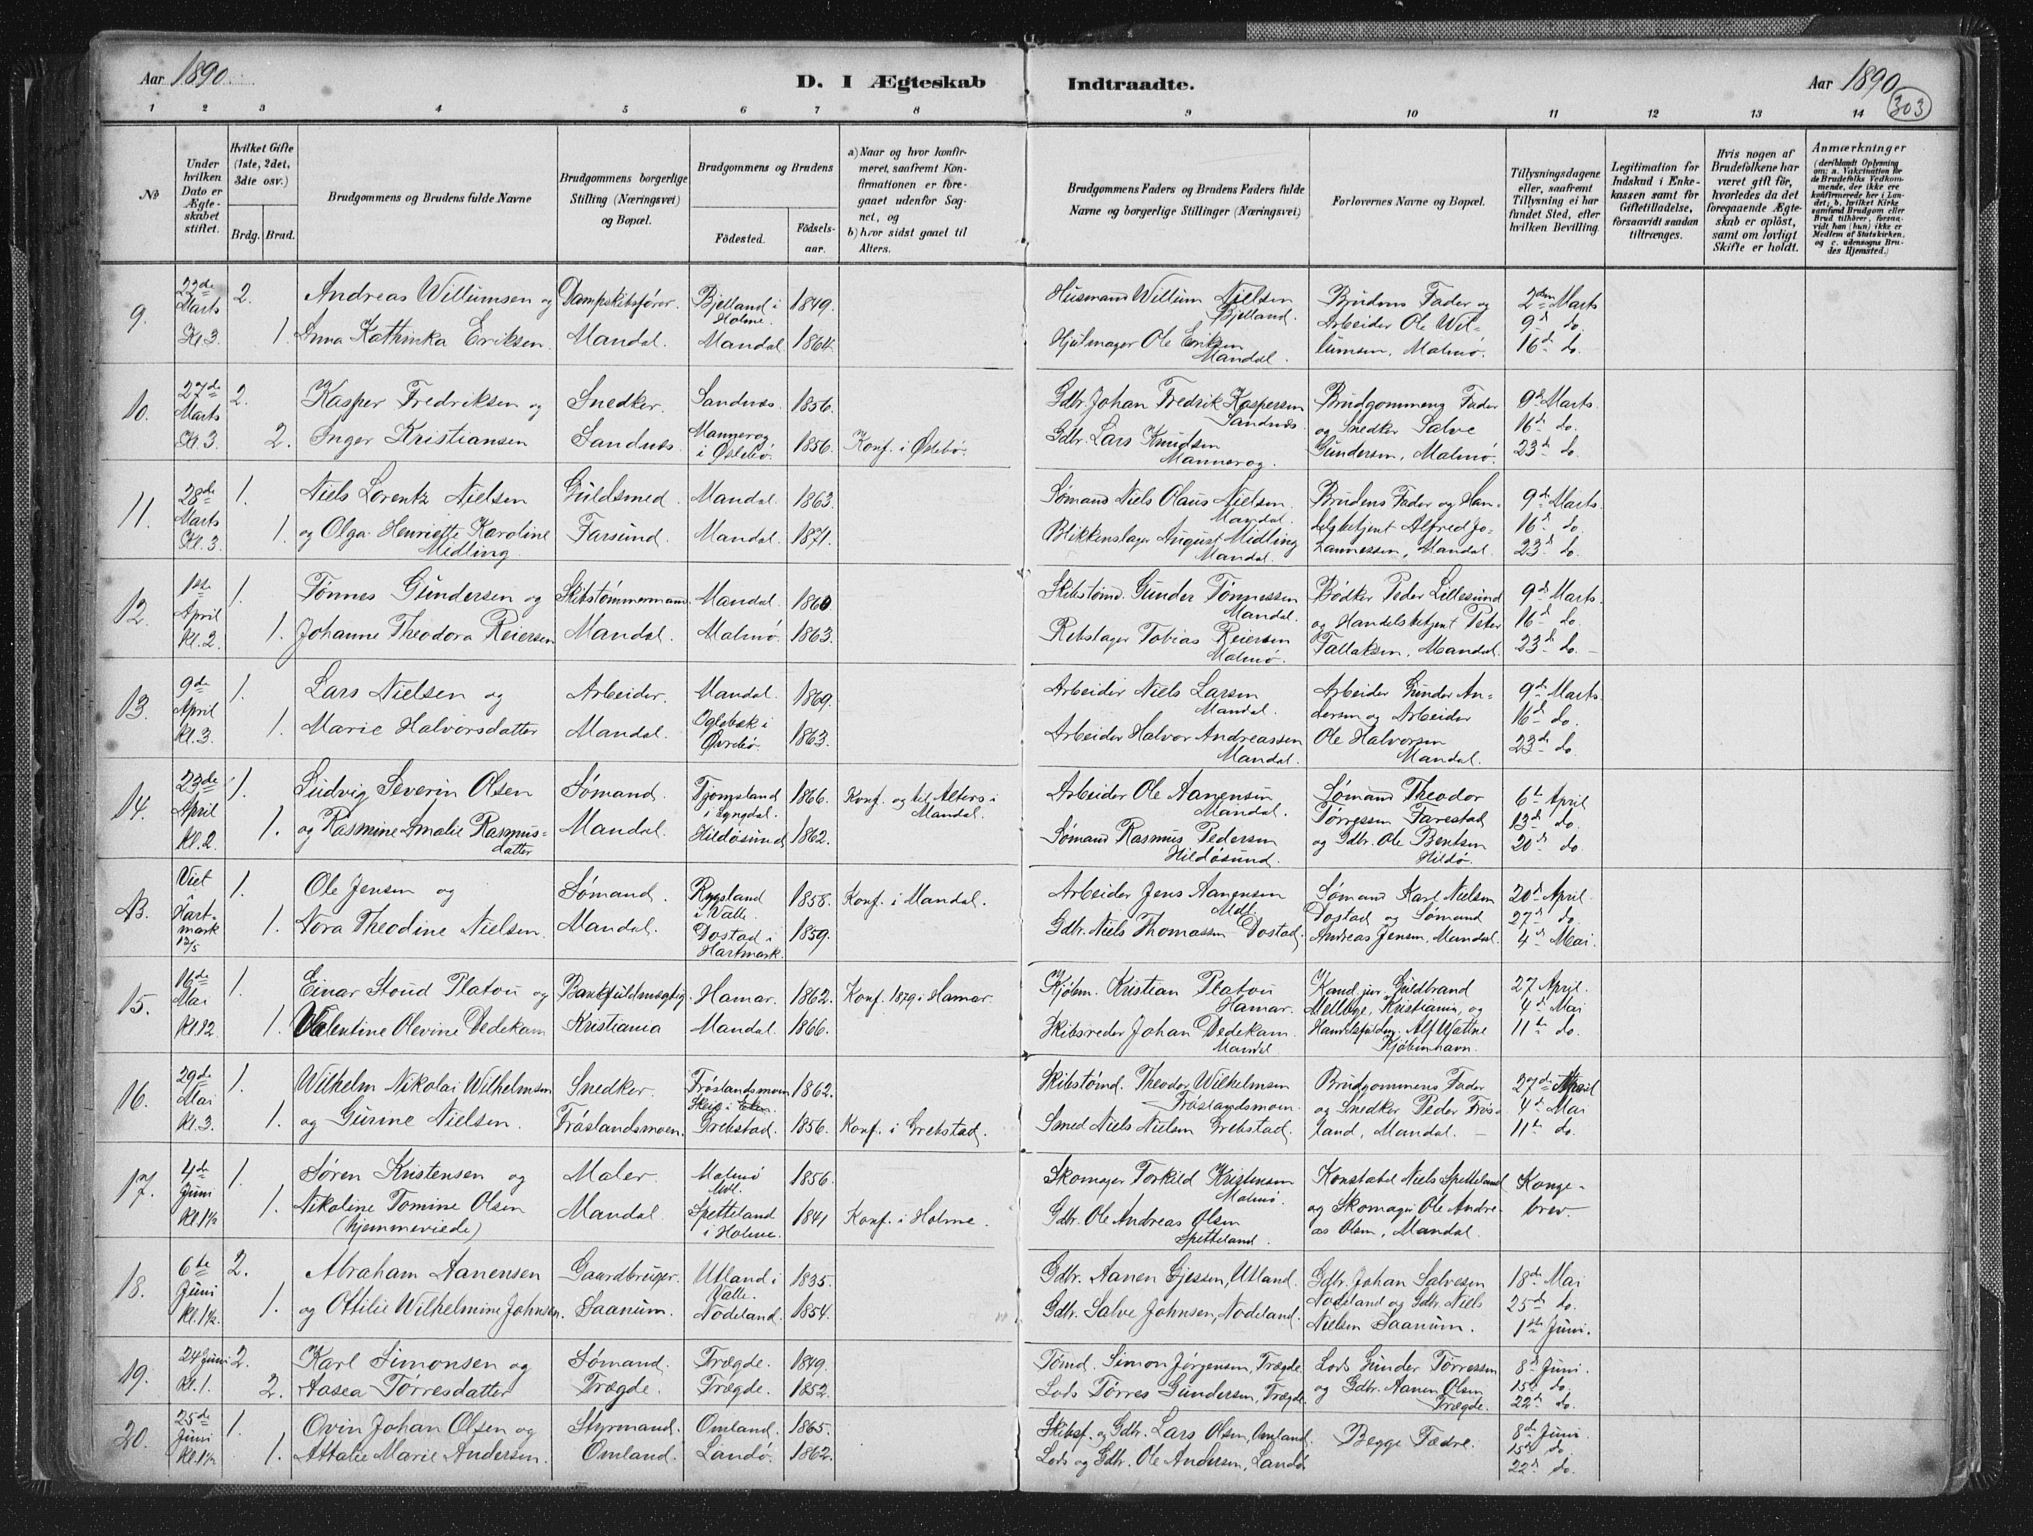 Aar 1890
D. I Ægteskab Indtraadte.
Aar 1890
303
1 2 3 4 5 6 7 8 9 10 11 12 13 14
No
Under hvilken Dato er Ægteskabet stiftet.
Hvilket Gifte (1ste, 2det, 3die osv.)
Brdg. Brud.
Brudgommens og Brudens fulde Navne
Brudgommens borgerlige Stilling (Næringsvei) og Bopæl.
Brudgommens og Brudens
Födested.
Födselsaar.
a) Naar og hvor konfirmeret, saafremt Konfirmationen er foregaaet udenfor Sognet, og
b) hvor sidst gaaet til Alters.
Brudgommens Faders og Brudens Faders fulde Navne og borgerlige Stillinger (Næringsvei)
Forlovernes Navne og Bopæl.
Tillysningsdagene eller, saafremt Tillysning ei har fundet Sted, efter hvilken Bevilling.
Legitimation for Indskud i Enkekassen samt for Giftetilladelse, forsaavidt saadan tiltrænges.
Hvis nogen af Brudefolkene har været gift för, hvorledes da det foregaaende Ægteskab er oplöst, samt om lovligt Skifte er holdt.
Anmærkninger (deriblandt Oplysning om: a. Vaccination for de Brudefolks Vedkommende, der ikke ere konfirmerede her i Landet; b. hvilket Kirkesamfund Brudgom eller Brud tilhörer, forsaavidt han (hun) ikke er Medlem af Statskirken, og c. udensogns Brudes Hjemsted.)
9. 22de Marts Kl. 3 2. Andreas Willumsen og Dampskibsfører. Bjelland i Holme. 1849. Husmand Willum Nielsen Bjelland. Brudens Fader og 2den Marts
1. Anna Kathinka Eriksen. Mandal. Mandal 1864. Hjulmager Ole Eriksen Mandal. Arbeider Ole Willumsen, Malmø. 9de do. 16de do.
10. 27de Marts Kl. 3 2. Kasper Fredriksen og Snedker. Sandnæs. 1856. Gdbr. Johan Fredrik Kaspersen Sandnæs. Brudgommens Fader 9de Marts.
2. Inger Kristiansen Sandnæs Mannerog i Øslebø 1856. Konf. i Øslebø. Gdbr. Lars Knudsen Mannerog. og Snedker Salve Gundersen, Malmø. 16de do. 23de do.
11. 28de Marts Kl. 3. 1. Niels Lorentz Nielsen Guldsmed. Mandal. 1863. Sømand Niels Olaus Nielsen Mandal. Brudens Fader og Han- 9de Marts.
1. og Olga Henriette Karoline Midling. Farsund. Mandal. 1871. Blikkenslager August Midling Mandal. delsbetjent Alfred Johannessen, Mandal. 16de do. 23de do.
12. 1ste April Kl. 2. 1. Tønnes Gundersen og Skibstømmermand Mandal. 1860 Skibstømd. Gunder Tønnessen Mandal. Bødker Peder Lillesund 9de Marts.
1. Johanne Theodora Reiersen Mandal. Malmø. 1863. Rebslager Tobias Reiersen Malmø. og Handelsbetjent Peter Tallaksen, Mandal. 16de do. 23de do.
13. 9de April Kl. 3. 1. Lars Nielsen og Arbeider. Mandal. 1869. Arbeider Niels Larsen Mandal. Arbeider Gunder An- 9de Marts
1. Marie Halvorsdatter Mandal. Oglebæk i Øvrebø. 1863. Arbeider Halvor Andreassen Mandal. dersen og Arbeider Ole Halvorsen Mandal. 16de do. 23de do.
14. 23de April Kl. 2. 1. Ludvig Severin Olsen Sømand. Tjomsland i Lyngdal. 1866. Konf. og til Alters i Mandal. Arbeider Ole Aanensen Mandal. Sømand Theodor 6te April
1. og Rasmine Amalie Rasmusdatter Mandal. Hildøsund 1862. Sømand Rasmus Pedersen Hildøsund. Tørressen Farestad og Gdbr. Ole Bentsen Hildø. 13de do. 20de do.
B. Viet i Hartmark 12/5 1. Ole Jensen og Sømand. Rygsland i Valle. 1858. Konf. i Mandal. Arbeider Jens Aanensen Mdl. Sømand Karl Nielsen 20de April
1. Nora Theodine Nielsen. Mandal. Dostad i Hartmark. 1859. Gdbr. Niels Thomassen Dostad. Dostad og Sømand Andreas Jensen, Mandal. 27de do. 4de Mai.
15. 16de Mai Kl. 12 1. Einar Stoud Platou og Bankfuldmægtig Hamar. 1862. Konf. 1879 i Hamar. Kjøbm. Kristian Platou Hamar. Kand. jur. Guldbrand 27 April.
1. Valentine Olevine Dedekam Kristiania Mandal 1866. Skibsreder Johan Dedekam Mandal. Mellbye, Kristiania, og Handelsfuldm. Alf Wattne Kjøbenhavn. 4de Mai 11te do.
16. 29de Mai Kl. 3. 1. Wilhelm Nikolai Wilhelmsen Snedker. Frøslandsmoen 1862. Skibstømd. Theodor Wilhelmsen Frøslandsmoen. Brudgommens Fader 27de April
1. og Gurine Nielsen. Frøslandsmoen. Grebstad. 1856. Konf. i Grebstad. Smed Niels Nielsen Grebstad. og Snedker Peder Frøsland, Mandal. 4de Mai 11te do.
17. 4de Juni Kl. 1½ 1. Søren Kristensen og Maler. Malmø Mdl. 1856. Skomager Torkild Kristensen Malmø. Konstabel Niels Spetteland Konge-
1. Nikoline Tomine Olsen (hjemmeviede) Mandal. Spetteland i Holme. 1841 Konf. i Holme. Gdbr. Ole Andreas Olsen Spetteland. og Skomager Ole Andreas Olsen, Mandal. brev.
18. 6te Juni Kl. 1½. 2. Abraham Aanensen Gaardbruger. Utland i Valle. 1835. Gdbr. Aanen Gjessen, Utland. Gdbr. Johan Salvesen 18de Mai
1. og Ottilie Wilhelmine Johnsen. Saanum. Nodeland. 1854. Gdbr. Salve Johnsen, Nodeland. Nodeland og Gdbr. Niels Nielsen Saanum. 25de do. 1ste Juni.
19. 24 Juni Kl. 1. 2. Karl Simonsen og Sømand. Trægde. 1849. Tømd. Simon Jørgensen, Trægde Lods Gunder Tørressen 8de Juni.
2. Aasea Tørresdatter Trægde. Trægde. 1852. Lods Tørres Gundersen, Trægde og Gdbr. Aanen Olsen Trægde. 15de do. 22de do.
20. 25de Juni Kl. 1½ 1. Ovin Johan Olsen og Styrmand. Omland. 1865. Skibsf. og Gdbr. Lars Olsen, Omland. Begge Fædre. 8de Juni.
1. Attalie Marie Andersen. Omland. Landø. 1862. Lods og Gdbr. Ole Andersen, Landø 15de do. 22de do.